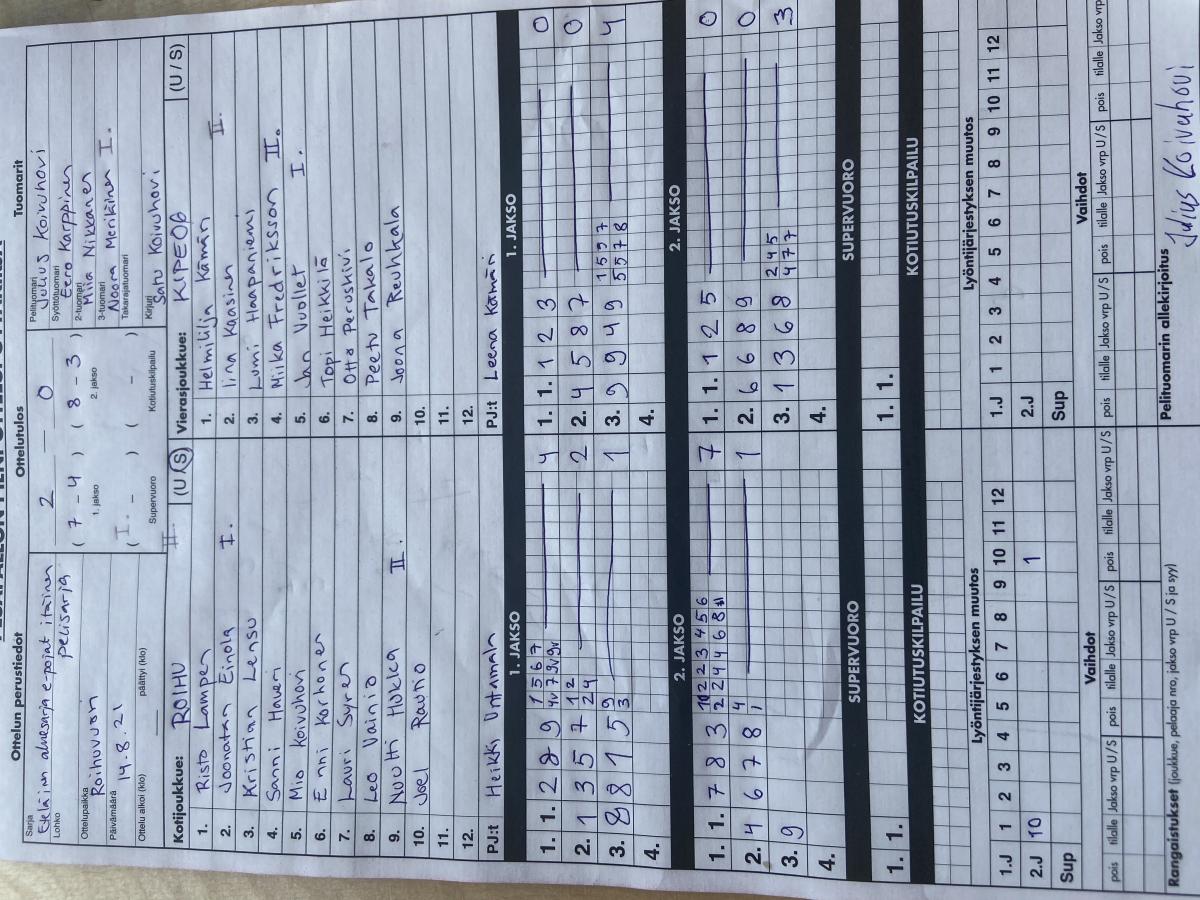 Ottelun perustiedot Ottelutulos Tuomarit
Sarja
Eteläinen aluesarja e-pojat itäinen
Lohko
pelisarja
Ottelupaikka
Roihuvuori
Päivämäärä
14.8.21
Ottelu alkoi (klo) päättyi (klo)
2 — 0
( 7 - 4 ) ( 8 - 3 )
1. jakso 2. jakso
( - ) ( - )
Supervuoro Kotiutuskilpailu
Pelituomari
Julius Koivuhovi
Syöttötuomari
Eero Karppinen
2-tuomari
Miia Nikkanen
3-tuomari
Noora Merikäinen I.
Takarajatuomari
Kirjuri
Satu Koivuhovi
Kotijoukkue: ROIHU (U / S)
1. Risto Lampen
2. Joonatan Einola I.
3. Kristian Lensu
4. Sanni Haveri
5. Mio Koivuhovi
6. Enni Korhonen
7. Lauri Syren
8. Leo Vainio
9. Nuutti Hokka II.
10. Joel Rautio
11.
12.
PJ:t Heikki Onttamala
Vierasjoukkue: KIPEOB (U / S)
1. Helmililja Kämän
2. Iina Kaasinen II.
3. Lumi Haapaniemi
4. Miika Fredriksson II.
5. Jan Vuollet I.
6. Topi Heikkilä
7. Otto Peruskivi
8. Peetu Takalo
9. Joona Reuhkala
10.
11.
12.
PJ:t Leena Kämäri
1. JAKSO 1. JAKSO
1. 1. 2 8 9 4
2. 1 3 5 7 2
3. 8 8 1 5 1
4.
1. 1. 1 2 3 0
2. 4 5 8 7 0
3. 9 9 4 9 4
1 5 9 7
5 5 7 8
4.
2. JAKSO 2. JAKSO
1. 1. 7 8 3 7
2. 4 6 7 8 1
3. 9
4.
1. 1. 1 2 5 0
2. 6 6 8 9 0
3. 1 3 6 8 3
2 4 5
4 7 7
4.
SUPERVUORO SUPERVUORO
1. 1. 1. 1.
KOTIUTUSKILPAILU KOTIUTUSKILPAILU
Lyöntijärjestyksen muutos Lyöntijärjestyksen muutos
1.J 1 2 3 4 5 6 7 8 9 10 11 12 1.J 1 2 3 4 5 6 7 8 9 10 11 12
2.J 10 1 2.J
Sup Sup
Vaihdot Vaihdot
pois tilalle Jakso vrp U / S pois tilalle Jakso vrp U / S pois tilalle Jakso vrp U / S pois tilalle Jakso vrp U / S pois tilalle Jakso vrp U / S pois tilalle Jakso vrp
Rangaistukset (joukkue, pelaaja nro, jakso vrp U / S ja syy) Pelituomarin allekirjoitus
Julius Koivuhovi